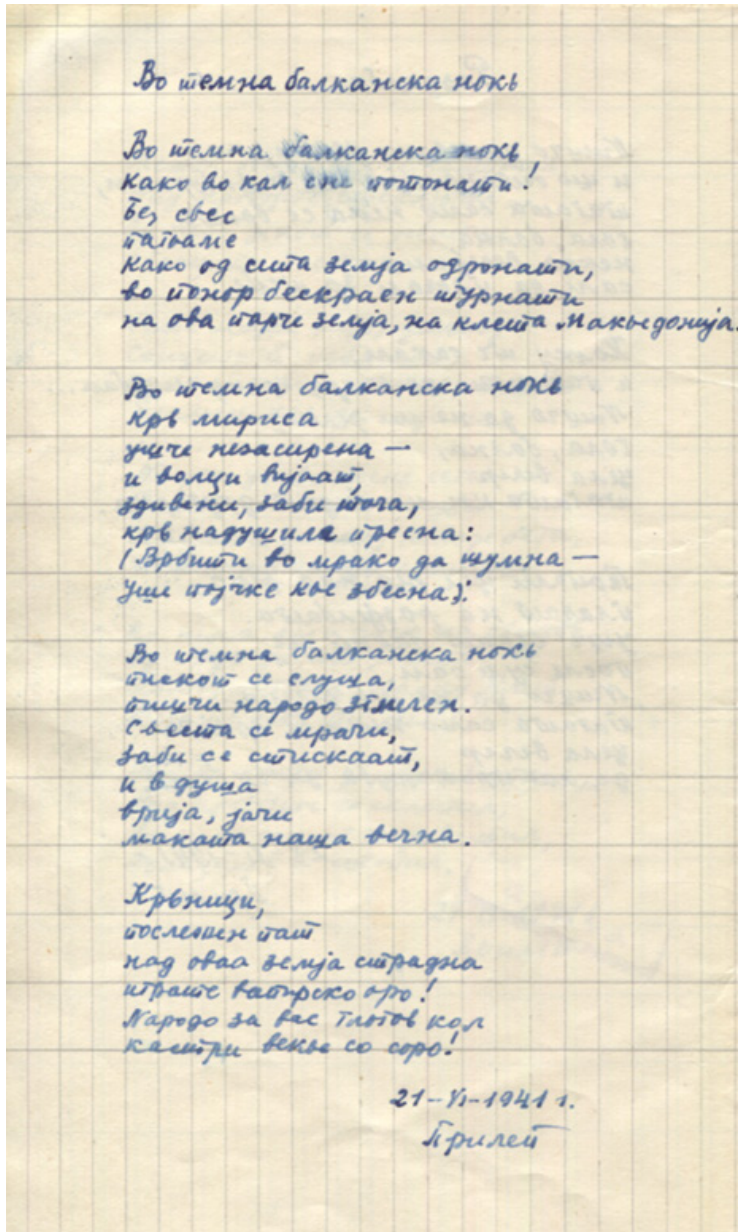 Во темна балканска нокь
Во темна балканска нокь,
како во кал сме потонати!
Без свес
патваме
како од сита земја одронати,
во понор бескраен турнати
на ова парче земја, на клета Македонија.
Во темна балканска нокь
крв мириса
ушче незасирена —
и волци вијаат,
здивени, заби точа,
крв надушила пресна:
(Врбити во мрако да шумна —
уще појчке кье збесна):
Во темна балканска нокь
пискот се слуща,
пищчи народо
Свеста се мрачи,
заби се стискаат,
и в душа
врија, јачи
маката наща вечна.
Крвници,
последен пат
над оваа земја страдна
играте вапирско оро!
Народо за вас глогов кол
кастри векье со соро!
21-VI-1941 г.
Прилеп